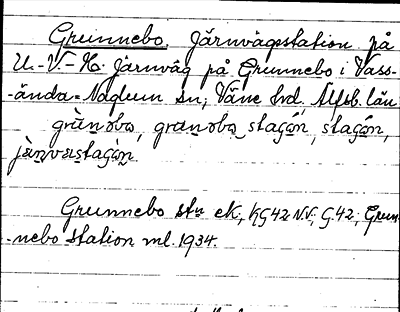 Grunnebo, Järnvägsstation på
U.-V.-H. järnväg på Grunnebo i Vass-
-ända-Naglum sn, Väne hd. Älfsb. län
grùnəbω, grunəbω staʃón, staʃón,
Grunnebo stn ek, KG42 N.V; G.42; Grun-
-nebo station ml. 1934.